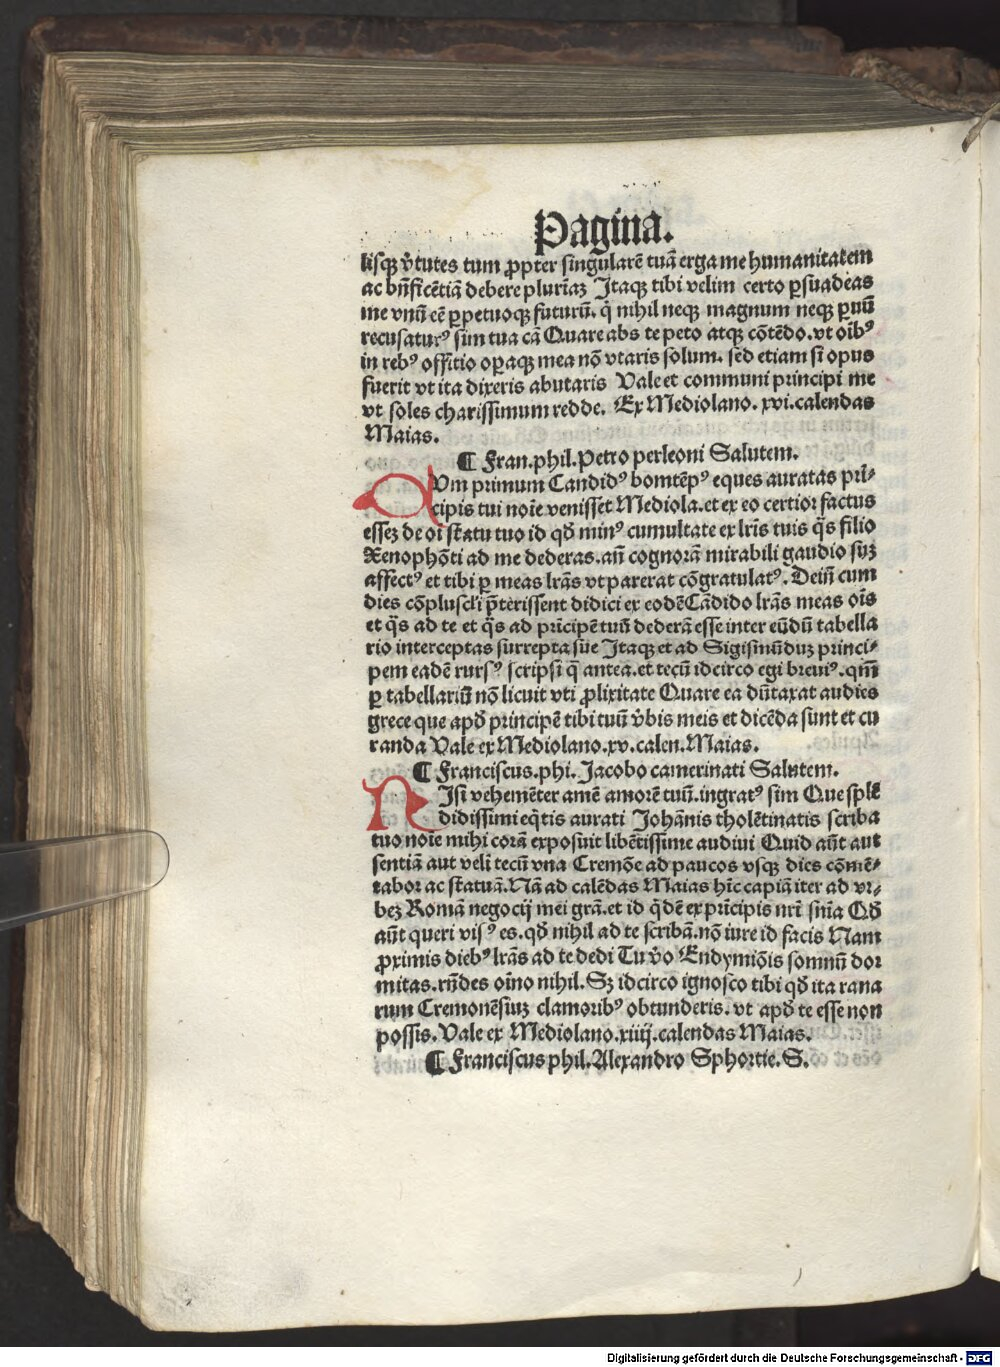 Pagina.
lisqꝫ v̓tutes tum ꝓpter singularē tuā erga me humanitatem
ac bn̄ficētiā debere plurīaꝫ Itaqꝫ tibi velim certo ꝑsuadeas
me vnū eē ꝑpetuoqꝫ futurū. q̇ nihil neqꝫ magnum neqꝫ ꝑuū
recusaturꝰ sim tua cā Quare abs te peto atqꝫ cōtēdo. vt oībꝰ
in rebꝰ offitio oꝑaqꝫ mea nō vtaris solum. sed etiam si opus
fuerit vt ita dixeris abutaris Vale et communi principi me
vt soles charissimum redde. Ex Mediolano. xvi. calendas
Maias.
¶ Fran. phil. Petro perleoni Salutem.
Vm primum Candidꝰ bomtēpꝰ eques auratas pri⸗
cipis tui noīe venisset Mediola. et ex eo certior factus
esseꝫ de oī statu tuo id qđ minꝰ cumultate ex lr̄is tuis q̄s filio
Xenophōti ad me dederas. an̄ cognorā mirabili gaudio suꝫ
affectꝰ et tibi ꝑ meas lr̄as vt parerat cōgratulatꝰ. Dein̄ cum
dies cōplusculi p̄terissent didici ex eodē Cādido lr̄as meas oīs
et q̄s ad te et q̄s ad prīcipē tuū dederā esse inter eūdū tabella
rio interceptas surrepta sue Itaqꝫ et ad Sigismūduꝫ princi⸗
pem eadē rursꝰ scripsi q̄ antea. et tecū idcirco egi breuiꝰ. qm̄
ꝑ tabellariū nō licuit vti ꝓlixitate Quare ea dūtaxat audies
grece que apđ principē tibi tuū v̓bis meis et dicēda sunt et cu
randa Vale ex Mediolano. xv. calen. Maias.
¶ Franciscus. phi. Jacobo camerinati Salutem.
NIsi vehemēter amē amorē tuū. ingratꝰ sim Que splē
didissimi eq̄tis aurati Johānis tholētinatis scriba
tuo noīe mihi corā exposuit libētissime audiui Quid aūt aut
sentiā aut veli tecū vna Cremōe ad paucos vsqꝫ dies cōmē⸗
tabor ac statuā. Nā ad calēdas Maias hīc capiā iter ad vr⸗
beꝫ Romā negocij mei grā. et id q̄dē ex prīcipis nr̄i sn̄ia Qđ
aūt queri visꝰ es. qđ nihil ad te scribā. nō iure id facis Nam
ꝓximis diebꝰ lr̄as ad te dedi Tu v̓o Endymiōis somnū dor
mitas. rn̄des oīno nihil. Sꝫ idcirco ignosco tibi qđ ita rana
rum Cremonēsiuꝫ clamoribꝰ obtunderis. vt apđ te esse non
possis. Vale ex Mediolano. xiiij. calendas Maias.
¶ Franciscus phil. Alexandro Sphortie. S.
Digitalisierung gefördert durch die Deutsche Forschungsgemeinschaft - DFG